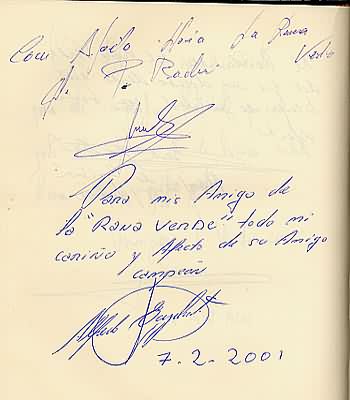 Con Afecto Hacia La Rana Verde
Para mis Amigo de
la "RANA VERDE" todo mi
cariño y Afecto de su Amigo
campeón
Alfredo
7.2.2001